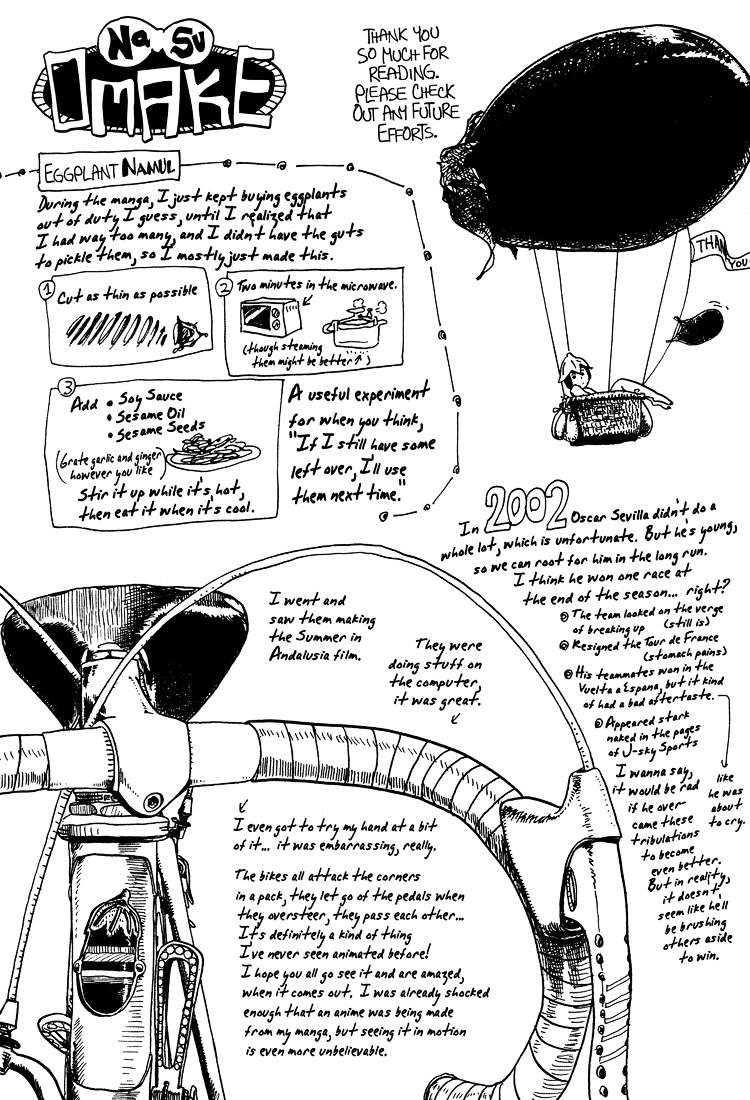 NaSu
OMAKE
THANK YOU
SO MUCH FOR
READING.
PLEASE CHECK
OUT ANY FUTURE
EFFORTS.
THANK
YOU
EGGPLANT NAMUL
During the manga, I just kept buying eggplants
out of duty I guess, until I realized that
I had way too many, and I didn't have the guts
to pickle them, so I mostly just made this.
1 Cut as thin as possible
2 Two minutes in the microwave.
(though steaming
them might be better↑)
3
Add • Soy Sauce
• Sesame Oil
• Sesame Seeds
(Grate garlic and ginger
however you like)
Stir it up while it's hot,
then eat it when it's cool.
A useful experiment
for when you think,
"If I still have some
left over, I'll use
them next time."
In 2002 Oscar Sevilla didn't do a
whole lot, which is unfortunate. But he's young,
so we can root for him in the long run.
I think he won one race at
the end of the season... right?
The team looked on the verge
of breaking up (still is)
Resigned the Tour de France
(stomach pains)
His teammates won in the
Vuelta a Espana, but it kind
of had a bad aftertaste.
Appeared stark
naked in the pages
of J-sky Sports
like
he was
about
to cry.
I wanna say,
it would be rad
if he over-
came these
tribulations
to become
even better.
But in reality,
it doesn't
seem like he'll
be brushing
others aside
to win.
I went and
saw them making
the Summer in
Andalusia film.
They were
doing stuff on
the computer,
it was great.
I even got to try my hand at a bit
of it... it was embarrassing, really.
The bikes all attack the corners
in a pack, they let go of the pedals when
they oversteer, they pass each other...
It's definitely a kind of thing
I've never seen animated before!
I hope you all go see it and are amazed,
when it comes out. I was already shocked
enough that an anime was being made
from my manga, but seeing it in motion
is even more unbelievable.